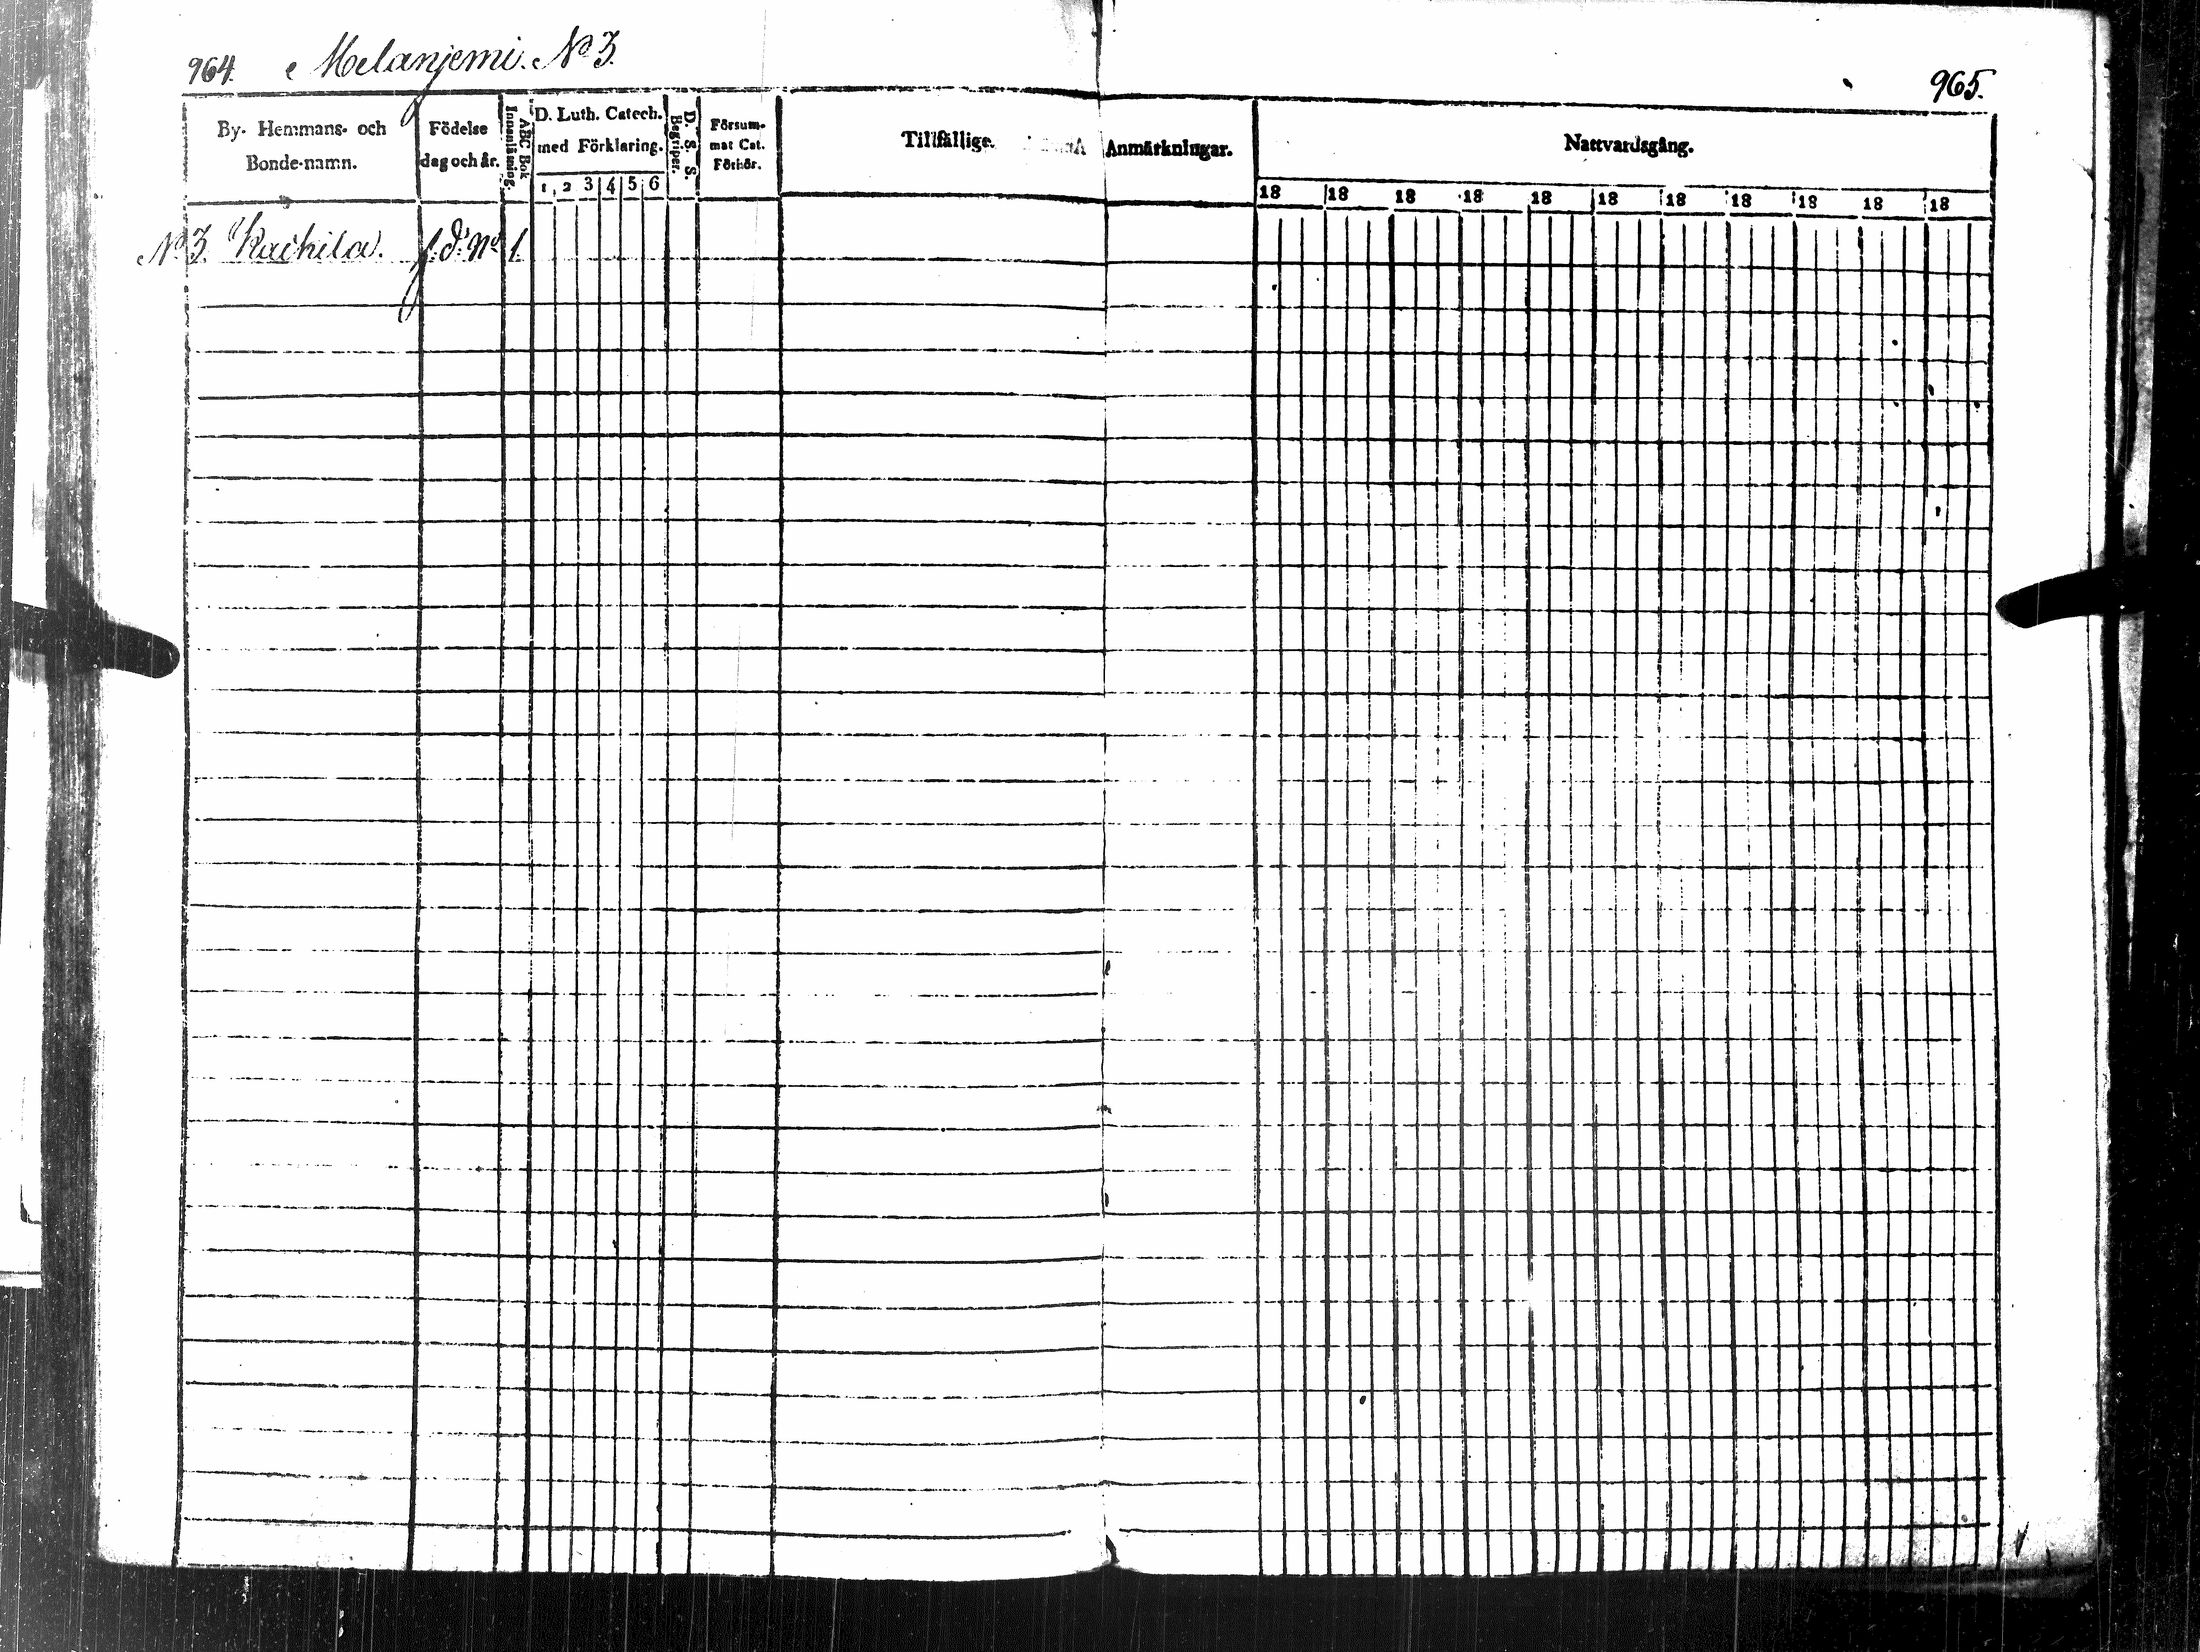 964. Melanjemi. No 3.
965.
By- Hemmans- och Bonde-namn.
Födelse dag och år.
ABC Bok
Innanläsning.
D. Luth. Catech. med Förklaring.
1 2 3 4 5 6
D. S. S.
Begriper.
Försummat Cat. Förhör.
Tillfällige Anmärkningar.
Nattvardsgång.
18 18 18 18 18 18 18 18 18 18 18
No 3. Kaihila. f. d. No 1.